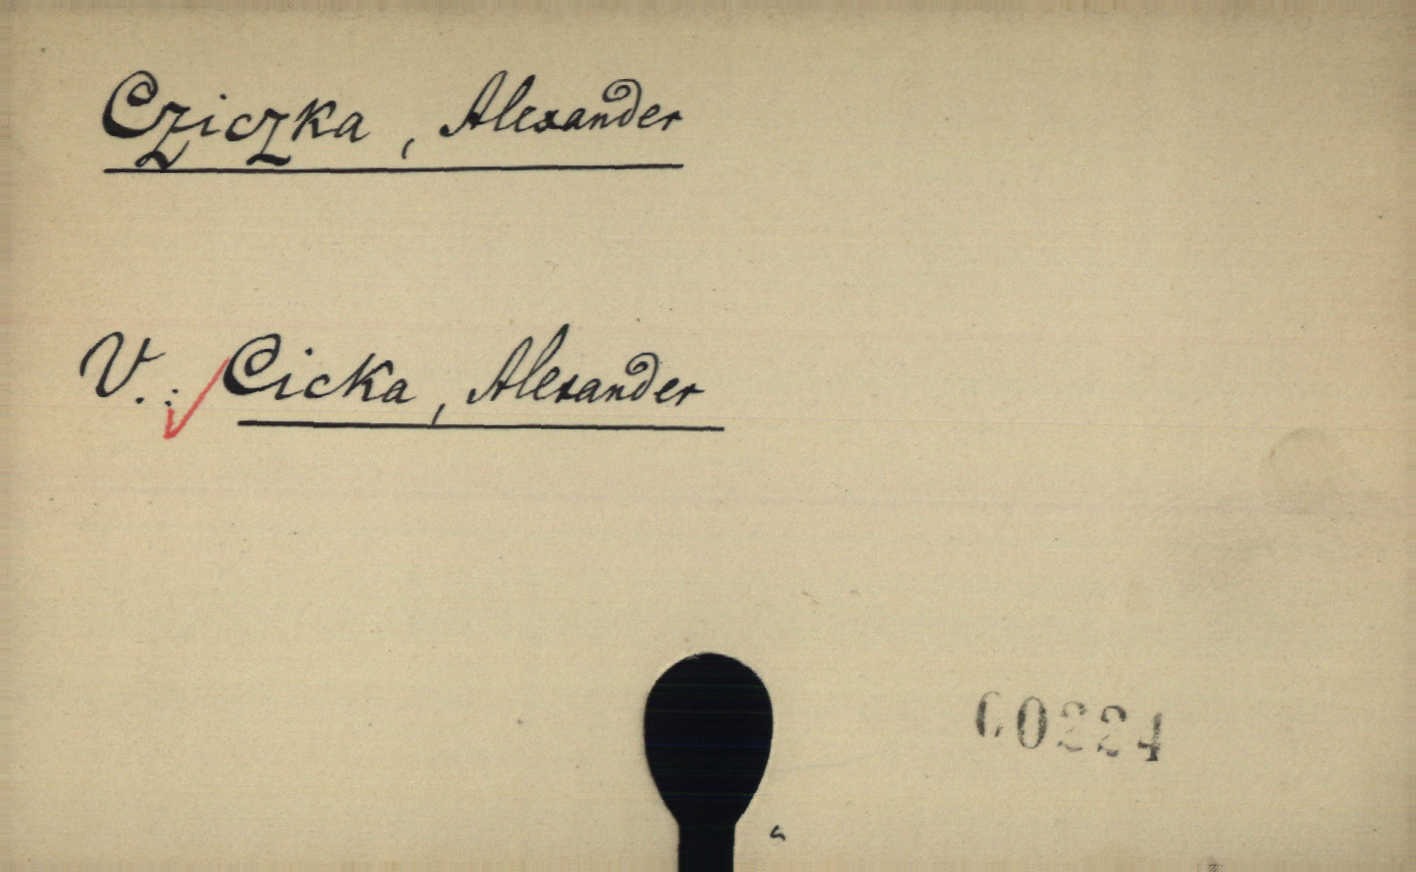 Cziczka, Alexander
V.: Cicka, Alexander
60224